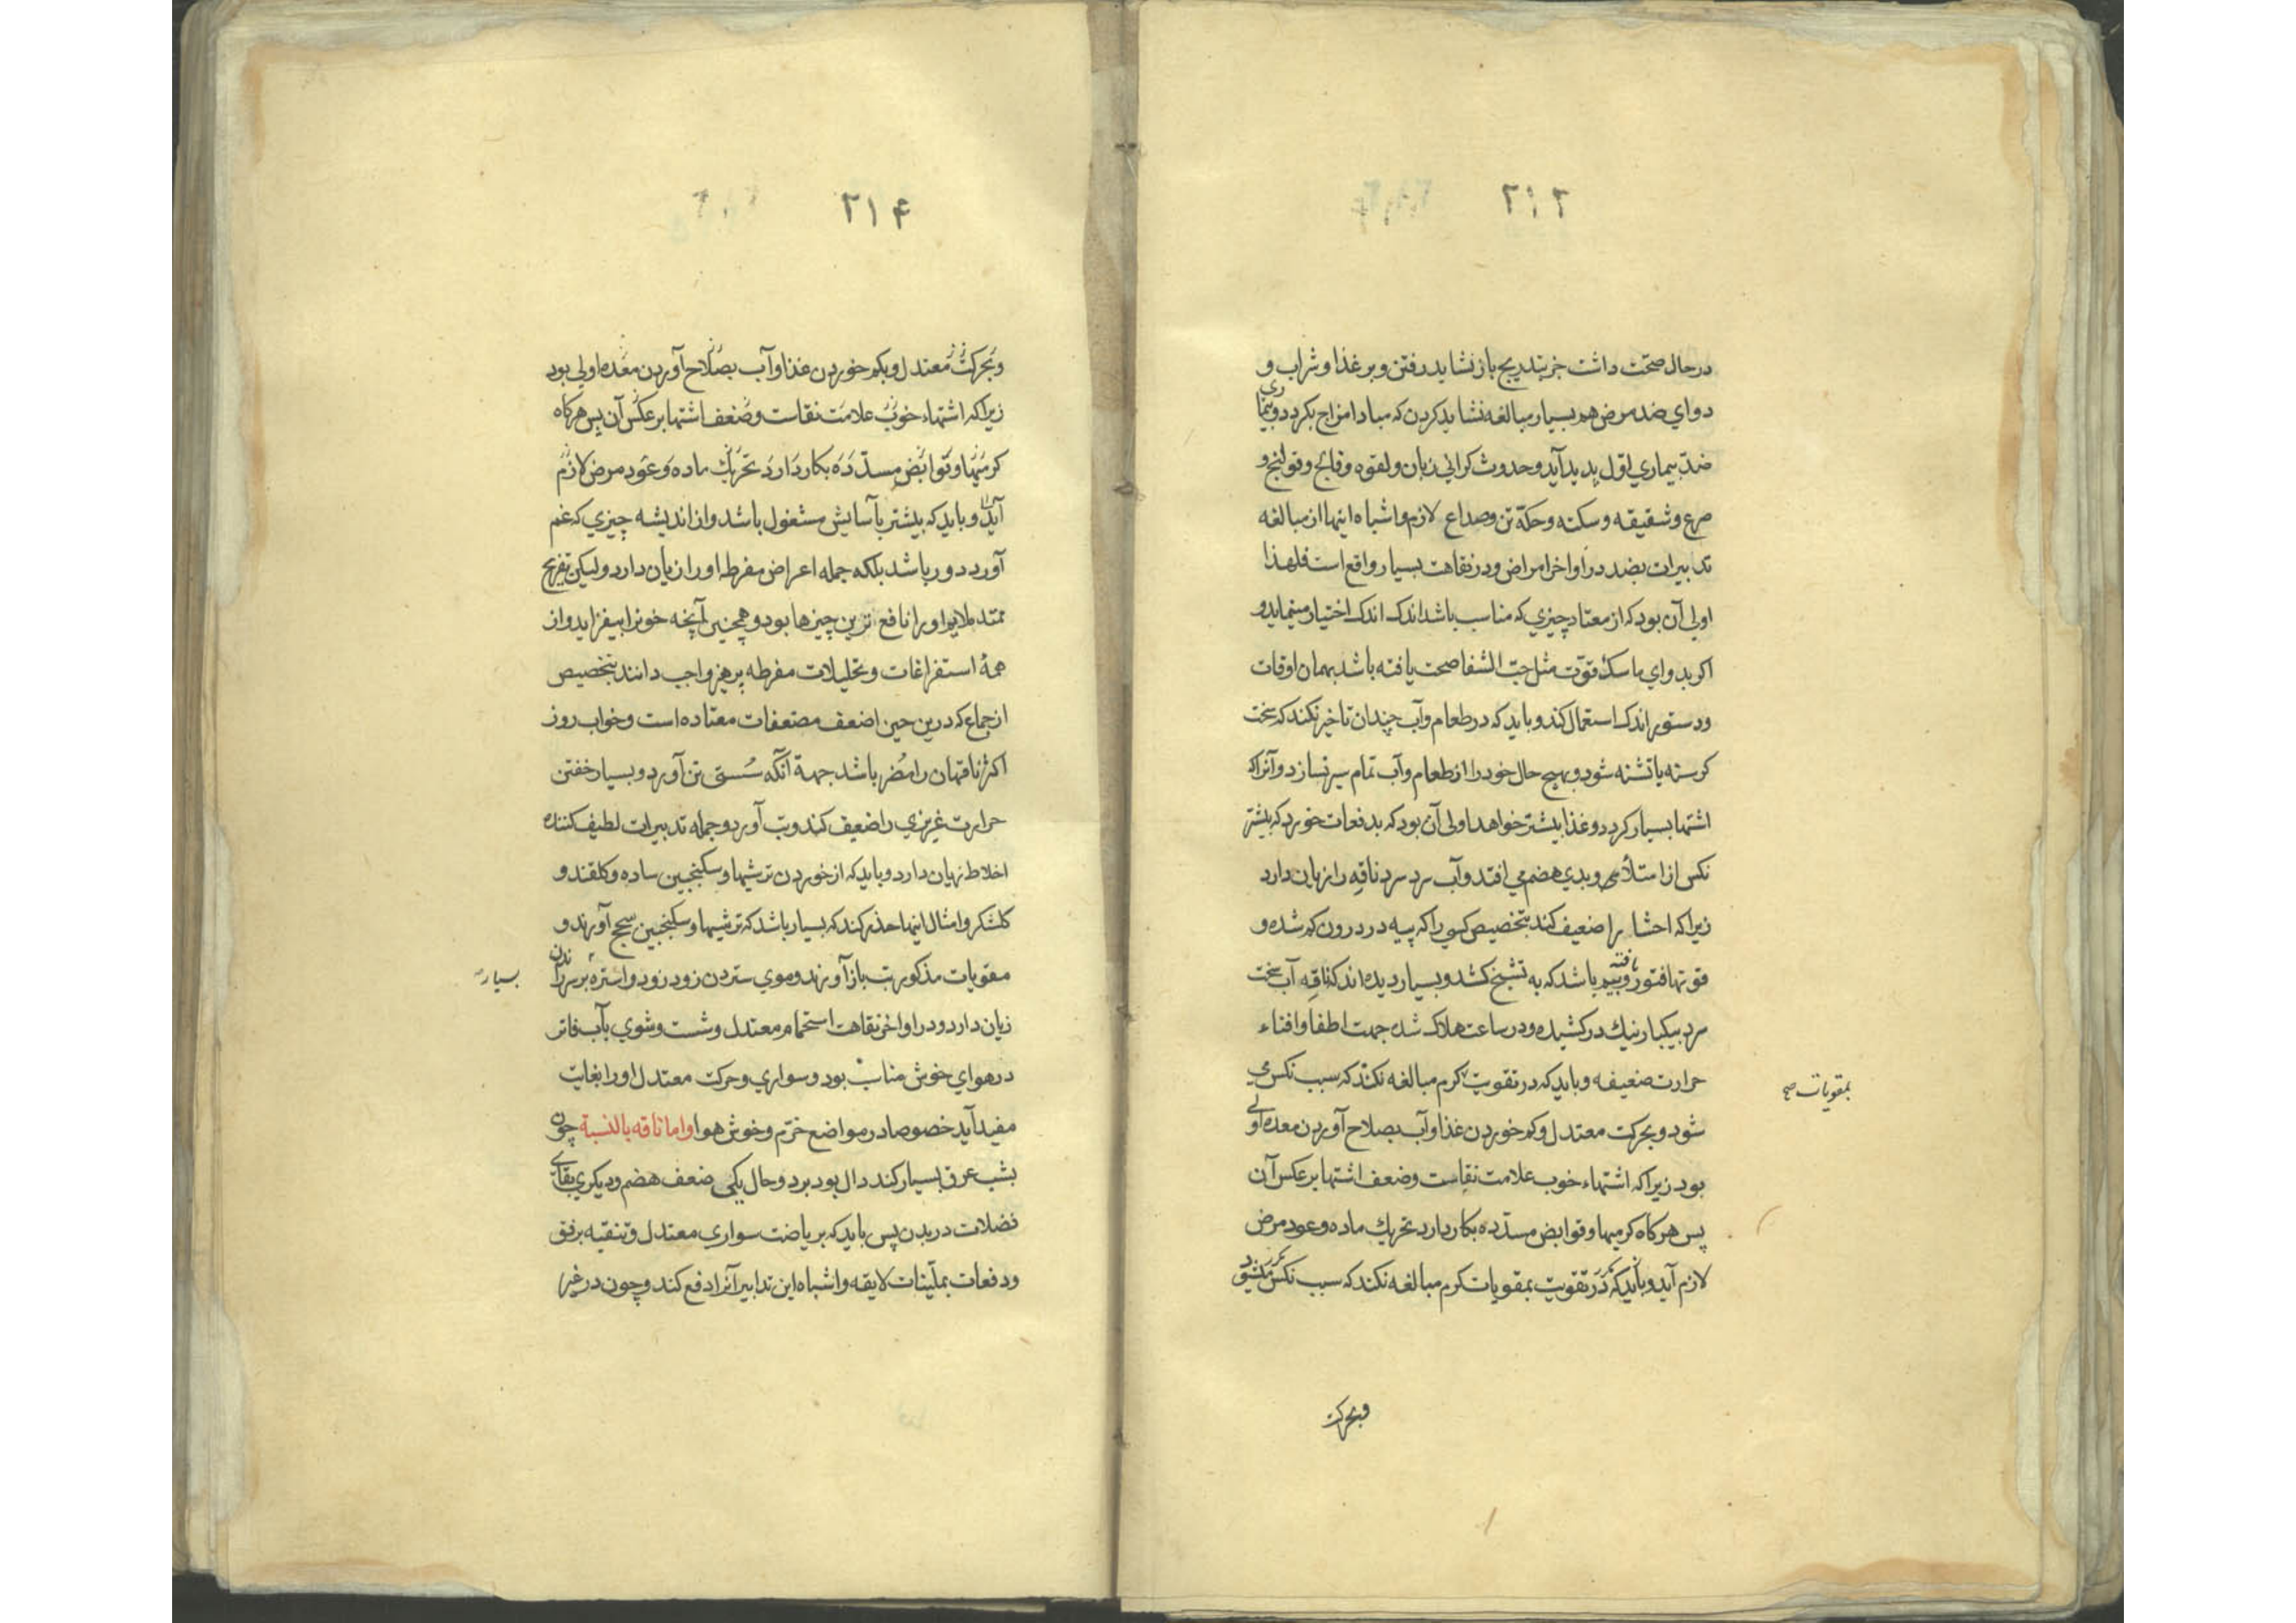 ۲۱۲
در حال صحّت داشت جز بتدریج باز نشاید رفتن و بر غذا و شراب و
دواي ضد مرض هم بسیار مبالغه نشاید کردن که مبادا مزاج بکردد و بیماری
ضدّ بیماري اوّل پدید آید و حدوث کرانی زبان و لقوه و فالج و قولنج و
صرع و شقیقه و سکته و حکّه تن و صداع لازم و اشباه اینها از مبالغه
تدبیرات بضد در اواخر امراض و در نقاهت بسیار واقع است فلهذا
اولی آن بود که از معتاد چیزي که مناسب باشد اندک اندک اختیار مینماید و
اکر بدواي ماسکۀ قوّت مثل حبّ الشفا صحت یافته باشد بهمان اوقات
و دستور اندک استعمال کند و باید که در طعام و آب چندان تاخیر نکند که سخت
کرسنه یا تشنه شود و بهیچ حال خود را از طعام و آب تمام سیر نسازد و آنرا که
اشتها بسیار کردد و غذا بیشتر خواهد اولی آن بود که بدفعات خورد که بیشتر
نکس از امتلاء و بدي هضم می افتد و آب سرد سرد ناقه را زیان دارد
زیرا که احشا را ضعیف کند بتخصیص کسی را که پیه در درون کم شده و
قوتها فتور یافته و بیم باشد که به تشنج کشد و بسیار دیده اند که ناقه آب سخت
سرد بیکبار نیك در کشیده و در ساعت هلاک شده جهت اطفا و افناء
حرارت ضعیفه و باید که در تقویت کرم مبالغه نکند که سبب نکس می
بمقویات صح
شود و بحرکت معتدل و کم خوردن غذا و آب بصلاح آوردن معده اولی
بود زیرا که اشتهاء خوب علامت نقاست و ضعف اشتها بر عکس آن
پس هرکاه کرمیها و قوابض مسدّده بکار دارد تحریك ماده و عود مرض
لازم آید و باید که در تقویت بمقویات کرم مبالغه نکند که سبب نکس میشود
و بحرکت
۲۱۴
و بحرکت معتدل و بکم خوردن غذا و آب بصلاح آوردن معده اولی بود
زیرا که اشتهاء خوب علامت نقاست و ضعف اشتها بر عکس آن پس هرکاه
کرمیها و قوابض مسدّده بکار دارد تحریك ماده و عود مرض لازم
آید و باید که بیشتر بآسایش مشغول باشد و از اندیشه چیزي که غم
آورد دور باشد بلکه جمله اعراض مفرطه او را زیان دارد ولیکن تفریح
ممتد ملایم او را نافع ترین چیزها بود و همچنین آنچه خونرا بیفزاید و از
همۀ استفراغات و تحلیلات مفرطه پرهیز واجب دانند بتخصیص
از جماع که درین حین اضعف مضعفات معتاده است و خواب روز
اکثر ناقهان را مُضر باشد جهة آنکه سُستی تن آورد و بسیار خفتن
حرارت غریزي را ضعیف کند و تب آورد و جمله تدبیرات لطیف کننده
اخلاط زیان دارد و باید که از خوردن ترشیها و سکنجبین ساده و کلقند و
کلشکر و امثال اینها حذر کند که بسیار باشد که ترشیها و سکنجبین سحج آورند و
مقویات مذکور تب باز آورند و موي ستردن زود زود و استره بر سر راندن
بسیار
زیان دارد و در اواخر نقاهت استحمام معتدل و شست و شوي بآب فاتر
در هواي خوش مناسب بود و سواري و حرکت معتدل او را بغایت
مفید آید خصوصا در مواضع خرّم و خوش هوا و اما ناقه بالنسبة چون
بشب عرق بسیار کند دال بود بر دو حال یکی ضعف هضم و دیکري بقای
فضلات در بدن پس باید که بریاضت سواري معتدل و تنقیه برفق
و دفعات بملیّنات لایقه و اشباه این تدابیر آنرا دفع کند و چون در غیر